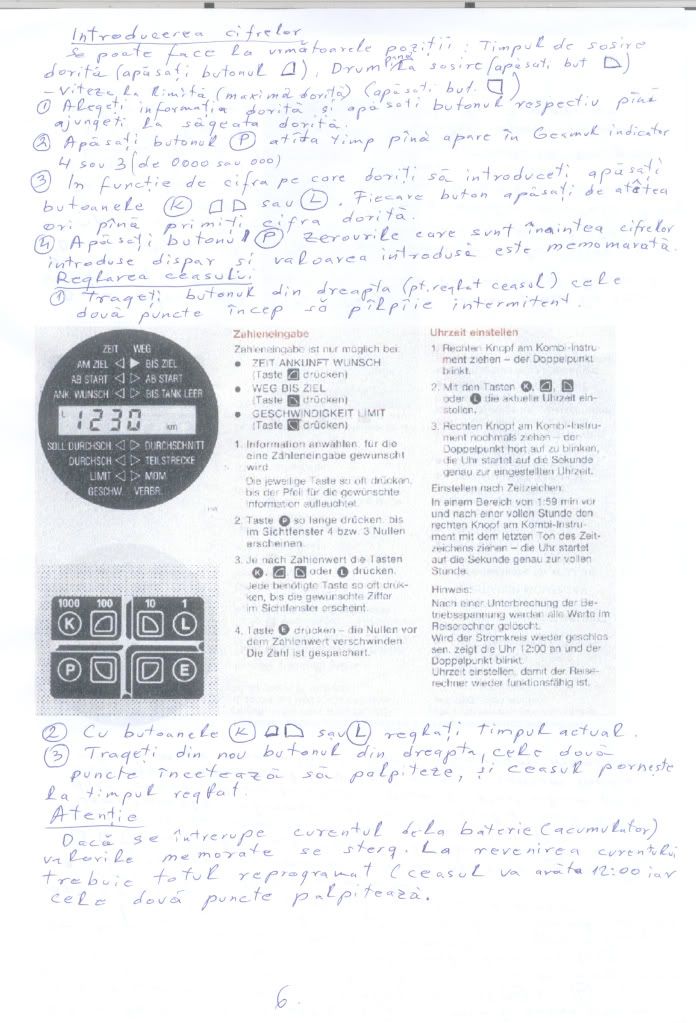 Introducerea cifrelor
Se poate face la următoarele poziții: Timpul de sosire
dorită (apăsați butonul ), Drum până la sosire (apăsați but )
- Viteza limită (maximă dorită) (apăsați but. )
① Alegeți informația dorită și apăsați butonul respectiv pînă
ajungeți la săgeata dorită.
② Apăsați butonul Ⓟ atîta timp pînă apare în Geamul indicator
4 sau 3 (de 0000 sau 000)
③ In funcție de cifra pe care doriți să introduceți apăsați
butoanele Ⓚ sau Ⓛ. Fiecare buton apăsați de atîtea
ori pînă primiți cifra dorită.
④ Apăsați butonul Ⓟ zerourile care sunt înaintea cifrelor
introduse dispar și valoarea introdusă este memorată.
Reglarea ceasului
① Trageți butonul din dreapta (pt. reglat ceasul) cele
două puncte încep să pîlpîie intermitent.
ZEIT WEG
AM ZIEL ◁ ▶ BIS ZIEL
AB START ◁ ▷ AB START
ANK WUNSCH ◁ ▷ BIS TANK LEER
L 1230 km
SOLL DURCHSCH ◁ ▷ DURCHSCHNITT
DURCHSCH ◁ ▷ TEILSTRECKE
LIMIT ◁ ▷ MOM
GESCHW. VERBR.
1000 100 10 1
K L
P E
Zahleneingabe
Zahleneingabe ist nur möglich bei:
● ZEIT ANKUNFT WUNSCH
(Taste drücken)
● WEG BIS ZIEL
(Taste drücken)
● GESCHWINDIGKEIT LIMIT
(Taste drücken)
1. Information anwählen, für die
eine Zahleneingabe gewünscht
wird.
Die jeweilige Taste so oft drücken,
bis der Pfeil für die gewünschte
Information aufleuchtet.
2. Taste P so lange drücken, bis
im Sichtfenster 4 bzw. 3 Nullen
erscheinen.
3. Je nach Zahlenwert die Tasten
K, oder L drücken.
Jede benötigte Taste so oft drük-
ken, bis die gewünschte Ziffer
im Sichtfenster erscheint.
4. Taste E drücken – die Nullen vor
dem Zahlenwert verschwinden.
Die Zahl ist gespeichert.
Uhrzeit einstellen
1. Rechten Knopf am Kombi-Instru-
ment ziehen – der Doppelpunkt
blinkt.
2. Mit den Tasten K, ,
oder L die aktuelle Uhrzeit ein-
stellen.
3. Rechten Knopf am Kombi-Instru-
ment nochmals ziehen – der
Doppelpunkt hört auf zu blinken,
die Uhr startet auf die Sekunde
genau zur eingestellten Uhrzeit.
Einstellen nach Zeitzeichen:
In einem Bereich von 1:59 min vor
und nach einer vollen Stunde den
rechten Knopf am Kombi-Instru-
ment mit dem letzten Ton des Zeit-
zeichens ziehen – die Uhr startet
auf die Sekunde genau zur vollen
Stunde.
Hinweis:
Nach einer Unterbrechung der Be-
triebsspannung werden alle Werte im
Reiserechner gelöscht.
Wird der Stromkreis wieder geschlos
sen, zeigt die Uhr 12:00 an und der
Doppelpunkt blinkt.
Uhrzeit einstellen, damit der Reise-
rechner wieder funktionsfähig ist.
② Cu butoanele Ⓚ sau Ⓛ reglați timpul actual.
③ Trageți din nou butonul din dreapta, cele două
puncte încetează să palpiteze, și ceasul pornește
la timpul reglat.
Atenție
Dacă se întrerupe curentul dela baterie (acumulator)
valorile memorate se sterg. La revenirea curentului
trebuie totul reprogramat (ceasul va arăta 12:00 iar
cele două puncte palpitează.
6.